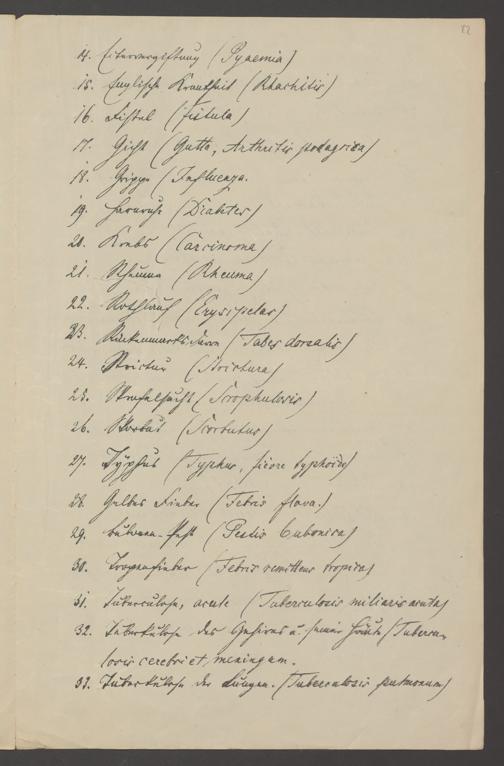 82
14. Eitervergiftung (Pyaemia)
15. Englische Krankheit (Rhachitis)
16. Fistel (Fistula)
17. Gicht (Gutta, Arthritis podagrica)
18. Grippe (Influenza.
19. Harnruhr (Diabetes)
20. Krebs (Carcinoma)
21. Rheuma (Rheuma)
22. Rothlauf (Erysipelas)
23. Rückenmarksdarre (Tabes dorsalis)
24. Strictur (Strictura)
25. Skrofelsucht (Scrophulosis)
26. Skorbut (Scorbutus)
27. Typhus (Typhus, fièvre typhoïde)
28. Gelbes Fieber (Febris flava.)
29. Bubonen-Pest (Pestis bubonica)
30. Tropenfieber (Febris remittens tropica)
31. Tuberculose, acute (Tuberculosis miliaris acuta)
32. Tuberkulose des Gehirns u. seiner Häute (Tubercu-
losis cerebri et meningum.
33. Tuberkulose der Lungen. (Tuberculosis pulmonum)